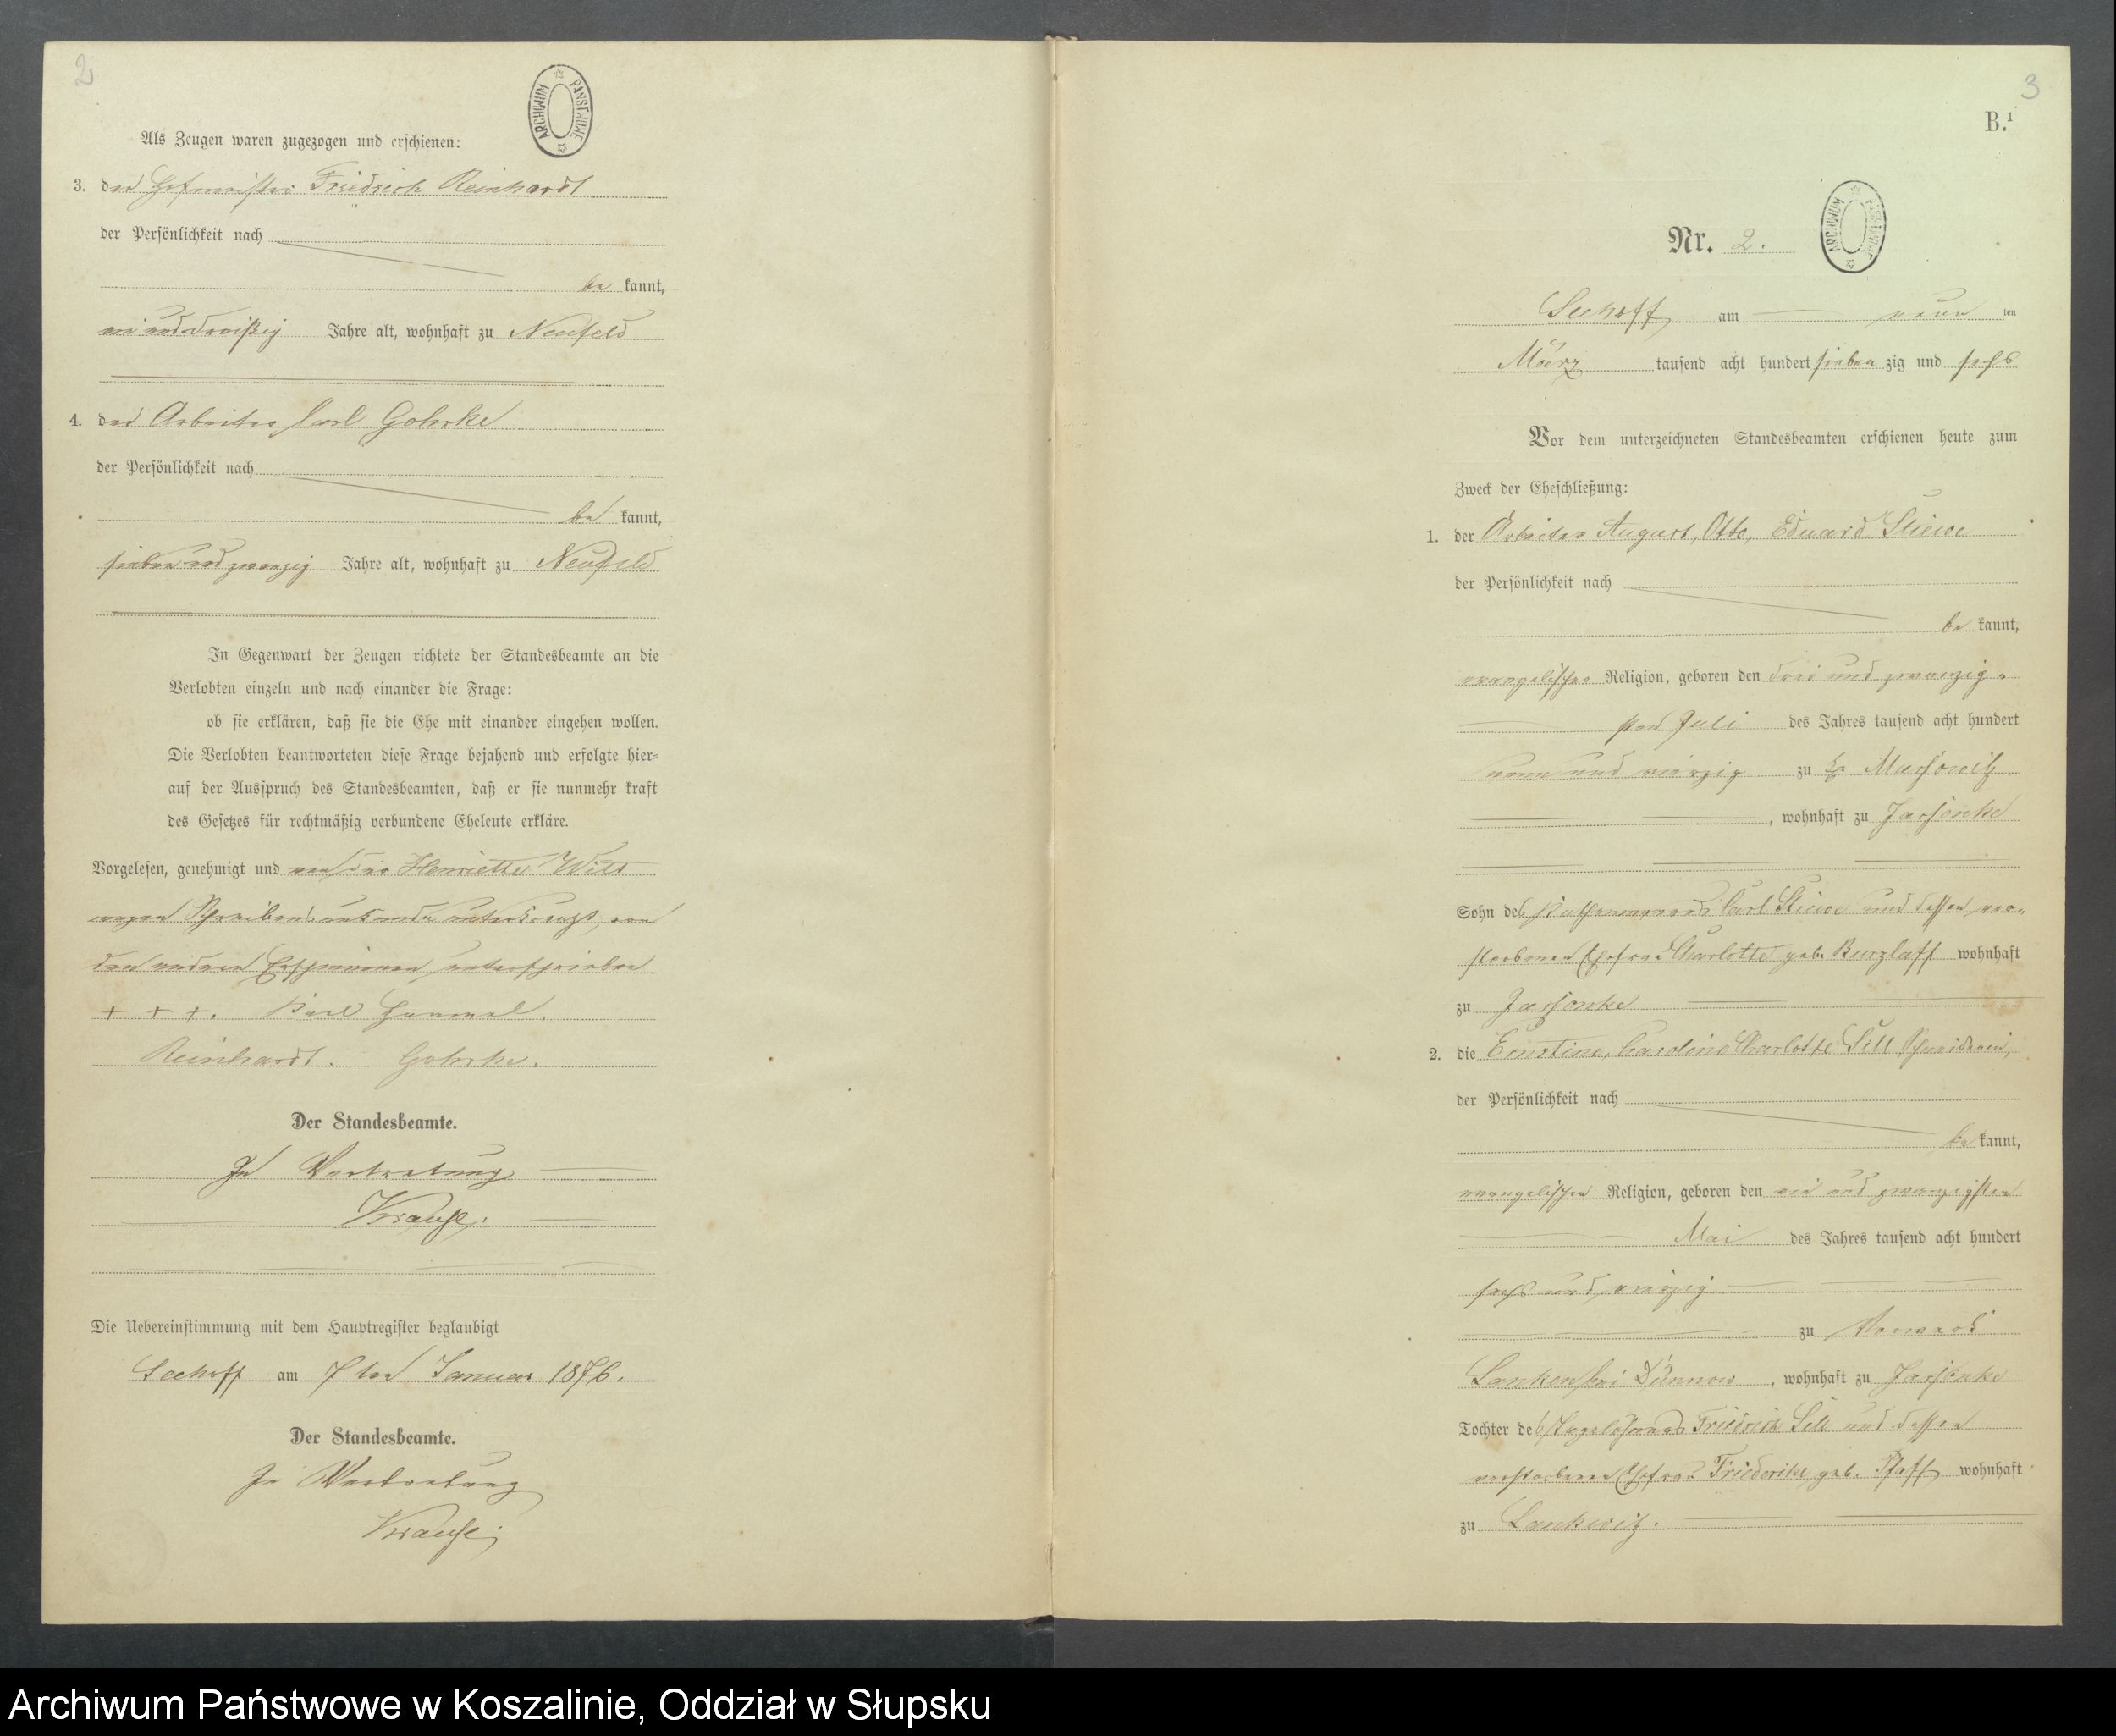 2
ARCHIWUM PAŃSTWOWE
Als Zeugen waren zugezogen und erschienen:
3. der Hofmeister Friedrich Reinhardt
der Persönlichkeit nach
be kannt,
ein und dreißig Jahre alt, wohnhaft zu Neufeld
4. der Arbeiter Carl Gohrke
der Persönlichkeit nach
be kannt,
sieben und zwanzig Jahre alt, wohnhaft zu Neufeld
In Gegenwart der Zeugen richtete der Standesbeamte an die
Verlobten einzeln und nach einander die Frage:
ob sie erklären, daß sie die Ehe mit einander eingehen wollen.
Die Verlobten beantworteten diese Frage bejahend und erfolgte hier-
auf der Ausspruch des Standesbeamten, daß er sie nunmehr kraft
des Gesetzes für rechtmäßig verbundene Eheleute erkläre.
Vorgelesen, genehmigt und von der Henriette Witt
wegen Schreibens unkunde unterkreuzt, von
den anderen Erschienenen unterschrieben
+ + +. Karl
Reinhardt. Gohrke.
Der Standesbeamte.
In Vertretung
Krause.
Die Uebereinstimmung mit dem Hauptregister beglaubigt
Seehoff am 7ten Januar 1876.
Der Standesbeamte.
In Vertretung
Krause.
3
B.¹
ARCHIWUM PAŃSTWOWE
Nr. 2.
Seehoff am neun ten
März tausend acht hundert sieben zig und sechs
Vor dem unterzeichneten Standesbeamten erschienen heute zum
Zweck der Eheschließung:
1. der Arbeiter August, Otto, Eduard Stiewe
der Persönlichkeit nach
be kannt,
evangelischer Religion, geboren den drei und zwanzig-
sten Juli des Jahres tausend acht hundert
neun und vierzig zu Marsowitz
, wohnhaft zu Jassonke
Sohn des Carl Stiewe und dessen ver-
storbenen Ehefrau Charlotte geb. Burzlaff wohnhaft
zu Jassonke
2. die Ernstine, Caroline Charlotte Sell Schneiderin,
der Persönlichkeit nach
be kannt,
evangelischer Religion, geboren den ein und zwanzigsten
Mai des Jahres tausend acht hundert
sechs und vierzig
zu Vorwerk
Lanken bei Dünnow, wohnhaft zu Jassonke
Tochter des Tagelöhners Friedrich Sell und dessen
verstorbenen Ehefrau Friederike, geb. Pfaff, wohnhaft
zu Lankwitz.
Archiwum Państwowe w Koszalinie, Oddział w Słupsku